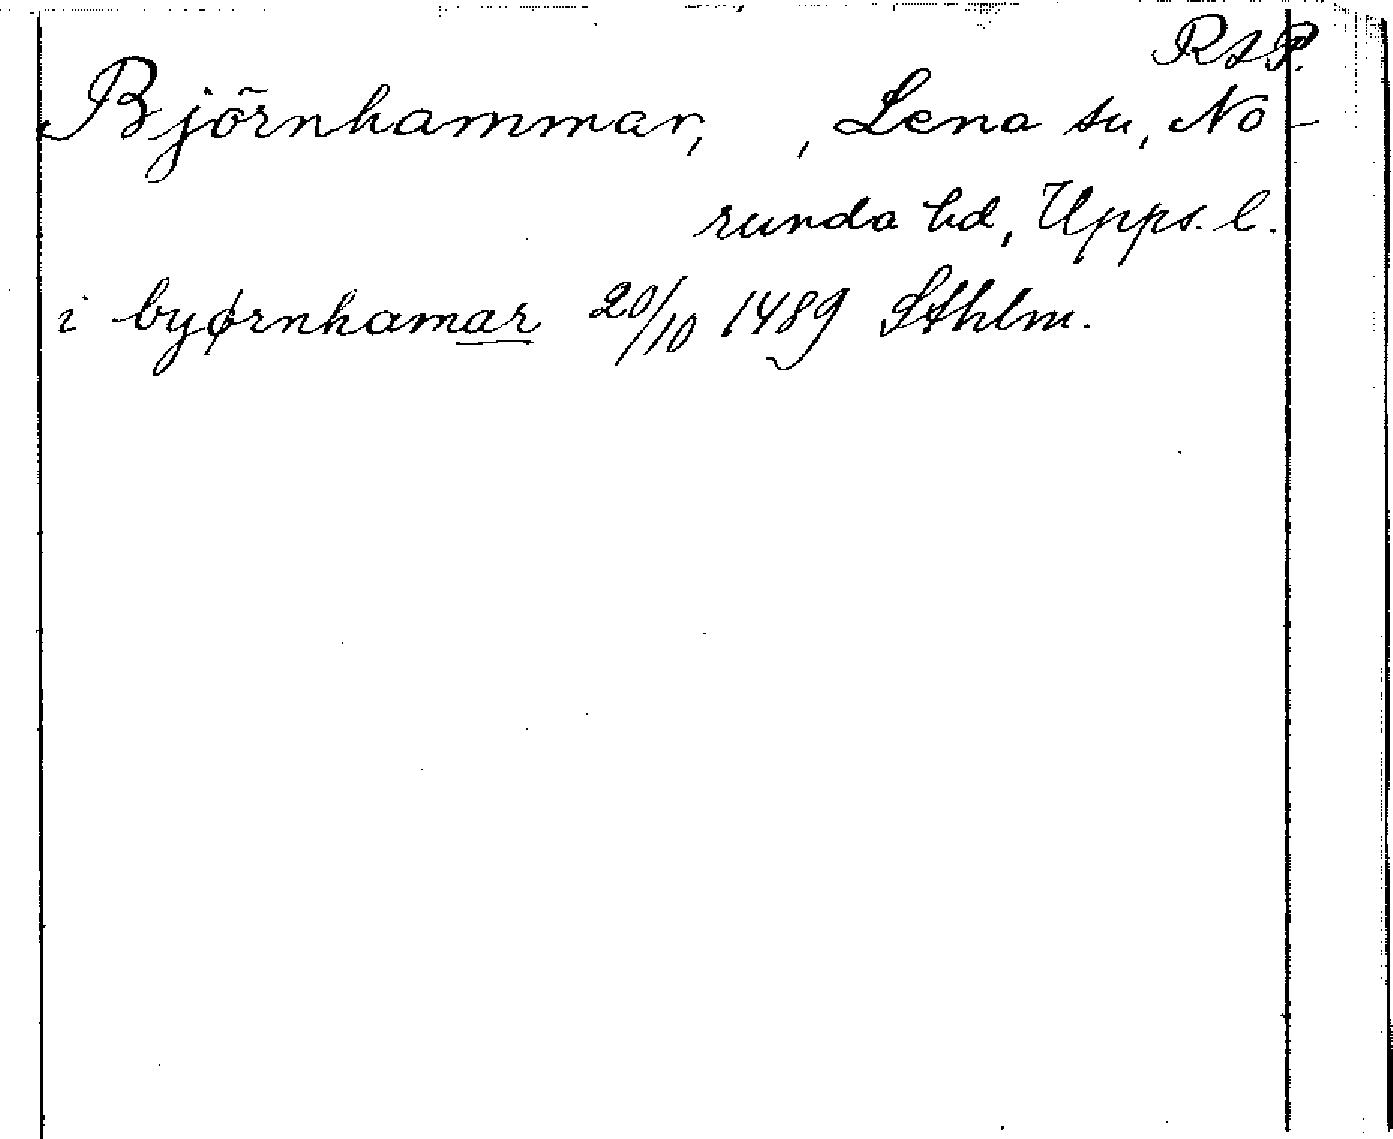 RAP.
Björnhammar, , Lena sn, No-
runda hd, Upps. l.
i byørnhamar 20/10 1489 Sthlm.